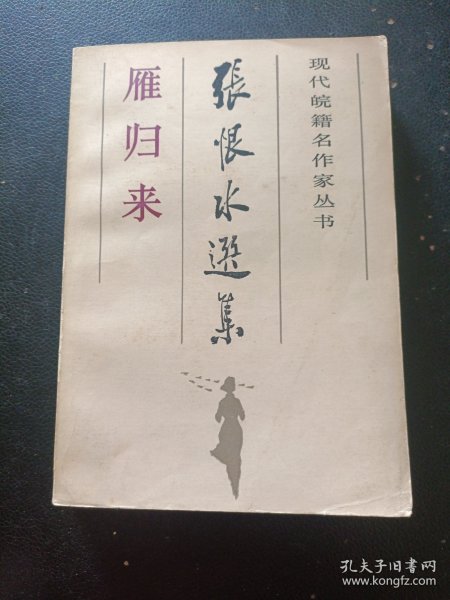 现代皖籍名作家丛书
張恨水選集
雁归来
孔夫子旧书网
www.kongfz.com